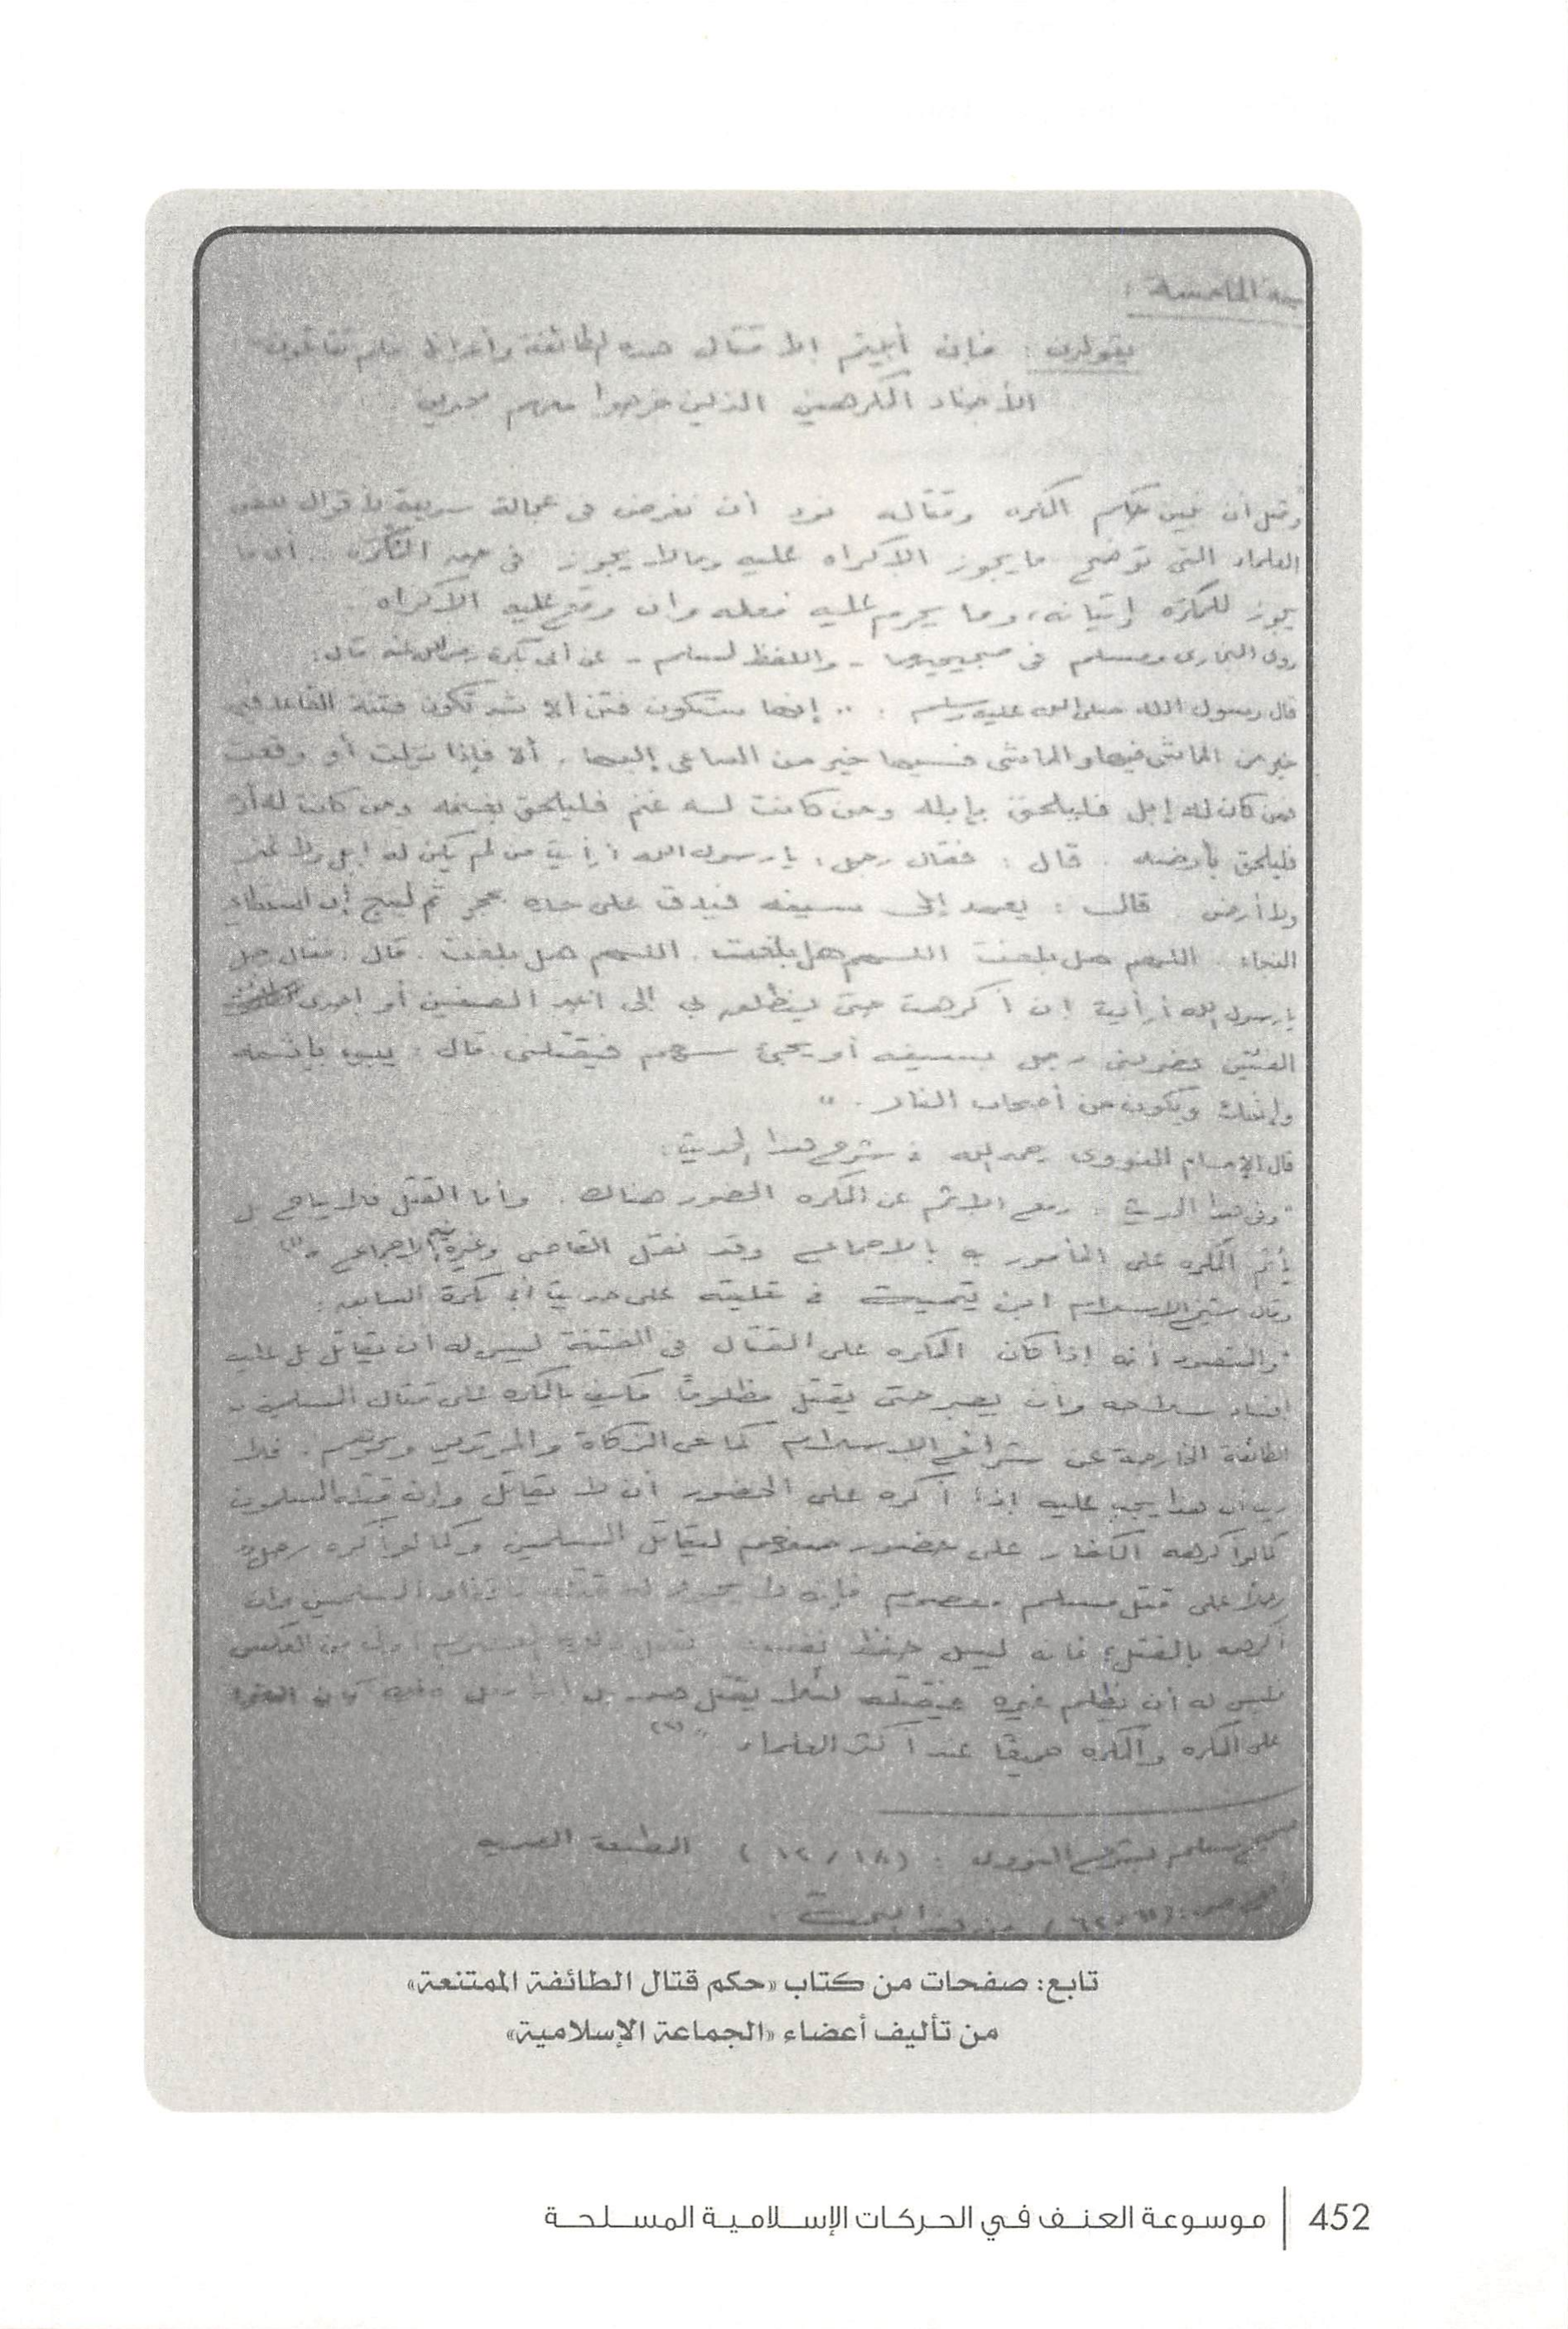 يقولون : فإن أبيتم إلا قتال هذه الطائفة وأمثالها فلم تقاتلون
الأجناد المكرهين الذين خرجوا معهم
وقبل أن نبين حكم المكره وقتاله نود أن نعرض في عجالة سريعة لأقوال بعض
العلماء التي توضح ما يجوز الإكراه عليه وما لا يجوز في حق المكره .. أي ما
يجوز للمكره إتيانه، وما يحرم عليه فعله وإن وقع عليه الإكراه .
روى البخاري ومسلم في صحيحيهما - واللفظ لمسلم - عن أبي بكرة رضي الله عنه قال:
قال رسول الله صلى الله عليه وسلم : .. إنها ستكون فتن ألا ثم تكون فتنة القاعد فيها
خير من الماشي فيها والماشي فيها خير من الساعي إليها . ألا فإذا نزلت أو وقعت
فمن كان له إبل فليلحق بإبله ومن كانت له غنم فليلحق بغنمه ومن كانت له أر
فليلحق بأرضه . قال : فقال رجل : يا رسول الله أرأيت من لم يكن له إبل ولا غنم
ولا أرض قال : يعمد إلى سيفه فيدق على حده بحجر ثم لينج إن استطاع
النجاء . اللهم هل بلغت اللهم هل بلغت . اللهم هل بلغت . قال : فقال رجل
يا رسول الله أرأيت إن أكرهت حتى ينطلق بي إلى أحد الصفين أو إحدى
الفئتين فضربني رجل بسيفه أو يجئ سهم فيقتلني قال : يبوء بإثمه
وإثمك ويكون من أصحاب النار . "
قال الإمام النووي رحمه الله في شرح هذا الحديث :
" وفي هذا الحديث : رفع الإثم عن المكره الحضور هناك . وأما القتل فلا يباح بل
يأثم المكره على المأمور به بالإجماع وقد نقل القاضي وغيره فيه الإجماع " (١)
وقال شيخ الإسلام ابن تيمية في تعليقه على حديث أبي بكرة السابق :
" والمقصود أنه إذا كان المكره على القتال في الفتنة ليس له أن يقاتل بل عليه
إفساد سلاحه وأن يصبر حتى يقتل مظلومًا فكيف بالمكره على قتال المسلمين
الطائفة الخارجة عن شرائع الإسلام كمانعي الزكاة والمرتدين ونحوهم . فلا
ريب أن هذا يجب عليه إذا أكره على الحضور أن لا يقاتل وإن قتله المسلمون
كما لو أكرهه الكفار على حضور صفهم ليقاتل المسلمين وكما لو أكره رجل
رجلا على قتل مسلم معصوم فإنه لا يجوز له قتله باتفاق المسلمين وإن
أكرهه بالقتل؛ فإنه ليس حفظ نفسه بقتل ذلك المعصوم أولى من العكس
فليس له أن يظلم غيره فيقتله لئلا يقتل هو
على المكره والمكره جميعًا عند أكثر العلماء " (٢)
صحيح مسلم بشرح النووي : (١٨ / ١٢) المطبعة المصرية
تابع: صفحات من كتاب «حكم قتال الطائفة الممتنعة»
من تأليف أعضاء «الجماعة الإسلامية»
452 | موسوعة العنف في الحركات الإسلامية المسلحة